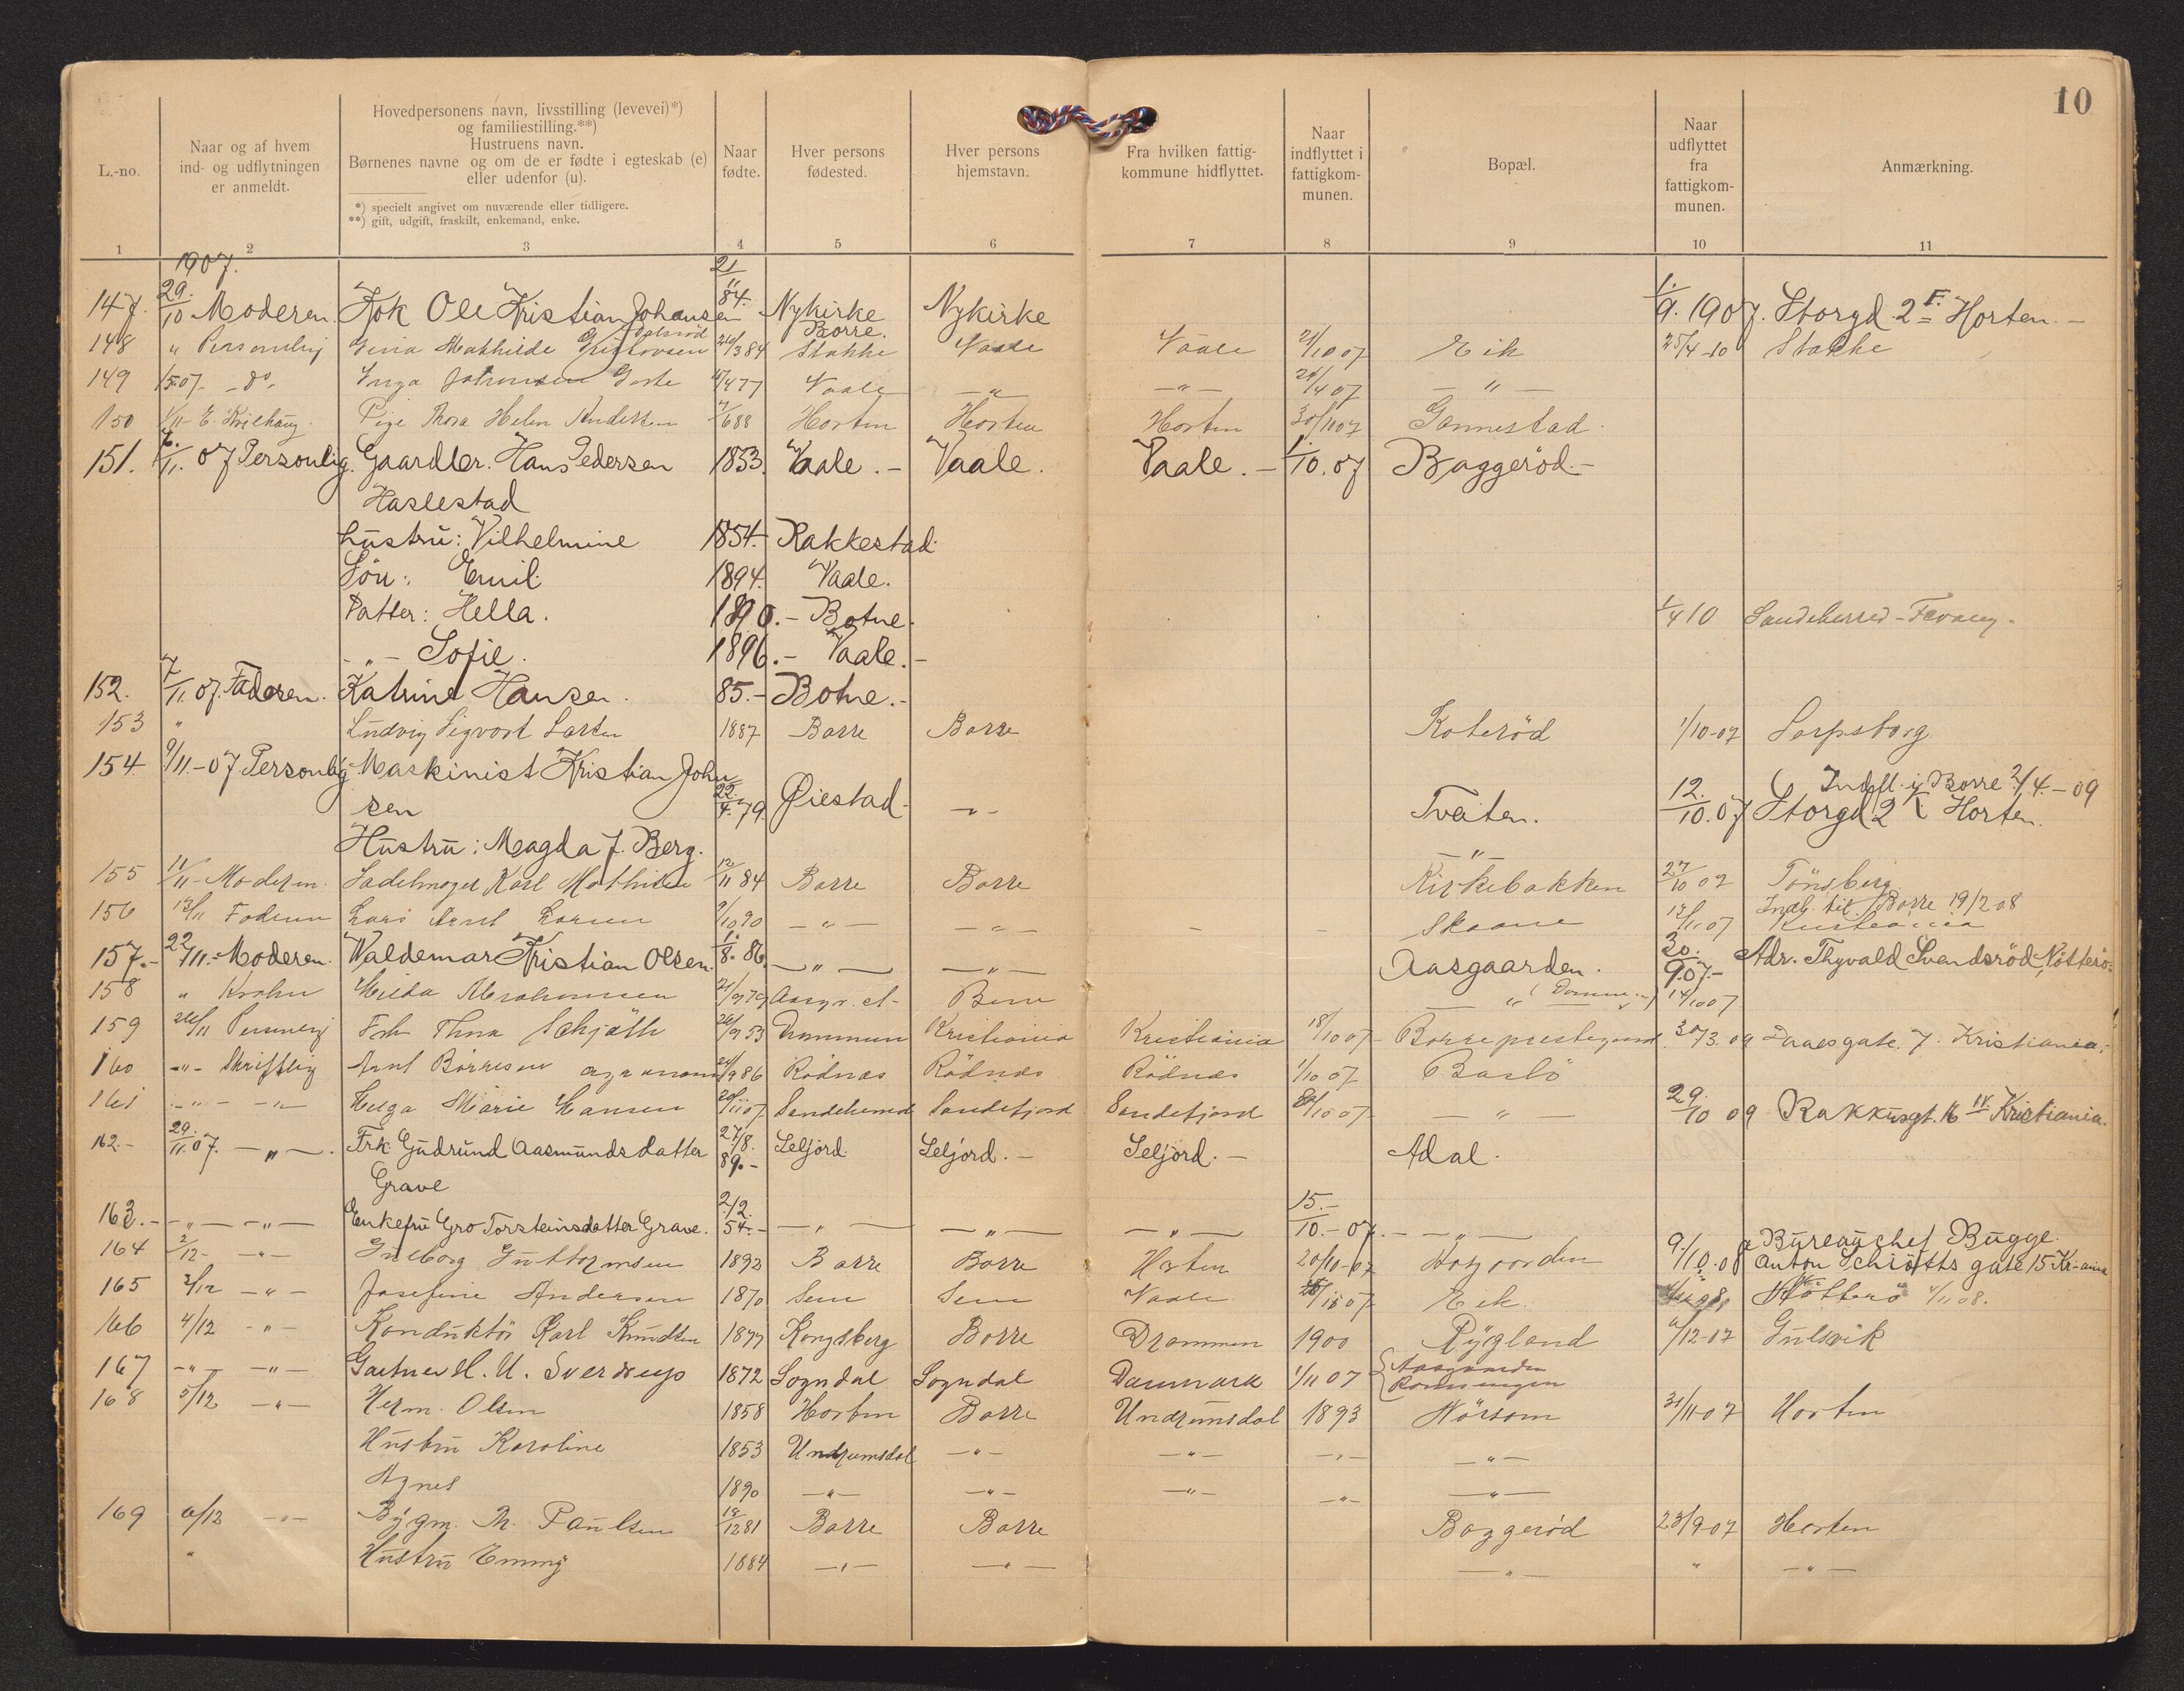 10
L.-no.
Naar og af hvem ind- og udflytningen er anmeldt.
Hovedpersonens navn, livsstilling (levevei)*) og familiestilling.**)
Hustruens navn.
Børnenes navne og om de er fødte i egteskab (e) eller udenfor (u).
*) specielt angivet om nuværende eller tidligere.
**) gift, udgift, fraskilt, enkemand, enke.
Naar fødte.
Hver persons fødested.
Hver persons hjemstavn.
Fra hvilken fattigkommune hidflyttet.
Naar indflyttet i fattigkommunen.
Bopæl.
Naar udflyttet fra fattigkommunen.
Anmærkning.
1 2 3 4 5 6 7 8 9 10 11
1907.
147. 29/10 Moderen. Ole Kristian Johansen 21/11 84. Nykirke Nykirke 1/9. 1907. Storgd. 2 Horten.-
148 " Personlig Mathilde 84 Borre. Stokke Vaale Vaale 21/10 07 Eik 25/4-10 Stokke
149 1/5 07. - do. Inga 77 Vaale -"- -"- 24/4 07 -"-
150 1/11 E. Pige Thora Helen Andersen 7/6 88 Horten Horten Horten 30/11 07 Gannestad
151. 6/11. 07 Personlig. Gaardbr. Hans Pedersen 1853. Vaale.- Vaale. Vaale.- 1/10. 07 Baggeröd.-
Haslestad
hustru: Vilhelmine 1854. Rakkestad.
Sön: Emil. 1894. Vaale.
Datter: Hella. 1890.- Botne. 1/4 10 Sandeherred -
-"- Sofie. 1896.- Vaale.-
152. 7/11. 07. Faderen. Katrine Hansen. 85.- Botne.-
153 " Ludvig Sigvart Larsen 1887 Borre Borre Koteröd 1/10-07 Sarpsborg
154 9/11-07 Personlig Maskinist Kristian John Indfl. i Borre 2/4.-09
sen 22/4.79 Øiestad -"- Tveiten. 12./10.07 Storgd 2 Horten.
Hustru: Magda J. Berg. -"-
155 11/11- Moderen. Sadelmager Karl Mathisen 12/11 84 Borre Borre Kirkebakken 27/10 07 Tönsberg
156 13/11 Faderen Lars Larsen 9/10 90 -"- -"- - - Skaane 12/11 07 Indfl. til Borre 19/2 08
Kristiania
157.- 22/11.- Moderen. Waldemar Kristian Olsen. 1./8. 86. -"- -"- Aasgaarden. 30./9 07.- Adr. Thyvald Svendsröd, Nötterö.
158 " Krohn Milda 21/9 79 -"- 14/10 07
159 26/11 Personlig Thina Schjöth 26/9 53 Drammen Kristiania Kristiania 18/10 07 Borre prestegaard 30/3 09 Daasgate. 7. Kristiania.
160 -"- Skriftlig Börresen 24/9 86 Rödnes Rödnes Rödnes 1/10 07 Bastö
161 -"- -"- Helga Marie Hansen 20/11 07 Sandeherred Sandefjord Sandefjord 10 07 -"- 29./10 09 16 IV Kristiania.
162.- 29./11.07. -"-. Frk Gudrund Aasmundsdatter 27/8. 89.- Seljord. Seljord.- Seljord.- Adal.
Grave
163.- -"- -"- Enkefru Gro Torsteinsdatter Grave. 2/2. 54.- -"- -"- -"- 15.-/10.-07. -"-
164 2/12- -"- Ingeborg Guttormsen 1893 Borre Borre Horten 20/10-07 9./10.08 Bureauchef Bugge.
Anton Schiötts gate 15 Kr-ania
165 3/12 -"- Josefine Andersen 1870 Sem Sem Vaale 11 07 Eik. Nötterö 4/11 08.
166 4/12 -"- Konduktör Karl Knudsen 1877 Kongsberg Borre Drammen 1900 Rygland 6/12-07 Gulsvik
167 -"- -"- Gartner H. U. Sverdrup 1872 Sogndal Sogndal Danmark 1/11 07 Aasgaarden
168 5/12 -"- Herm. Olsen 1858 Horten Borre Undrumsdal 1893 Nörsom 31/11-07 Horten
Hustru Karoline 1853 Undrumsdal -"- -"- -"- -"-
Agnes 1890 -"- -"- -"- -"- -"-
169 6/12 -"- Bygm. Th. Paulsen 18/12 81 Borre Borre Baggeröd 23/9 07 Horten
" Hustru Emmy 1884 -"- -"- -"- " -"-